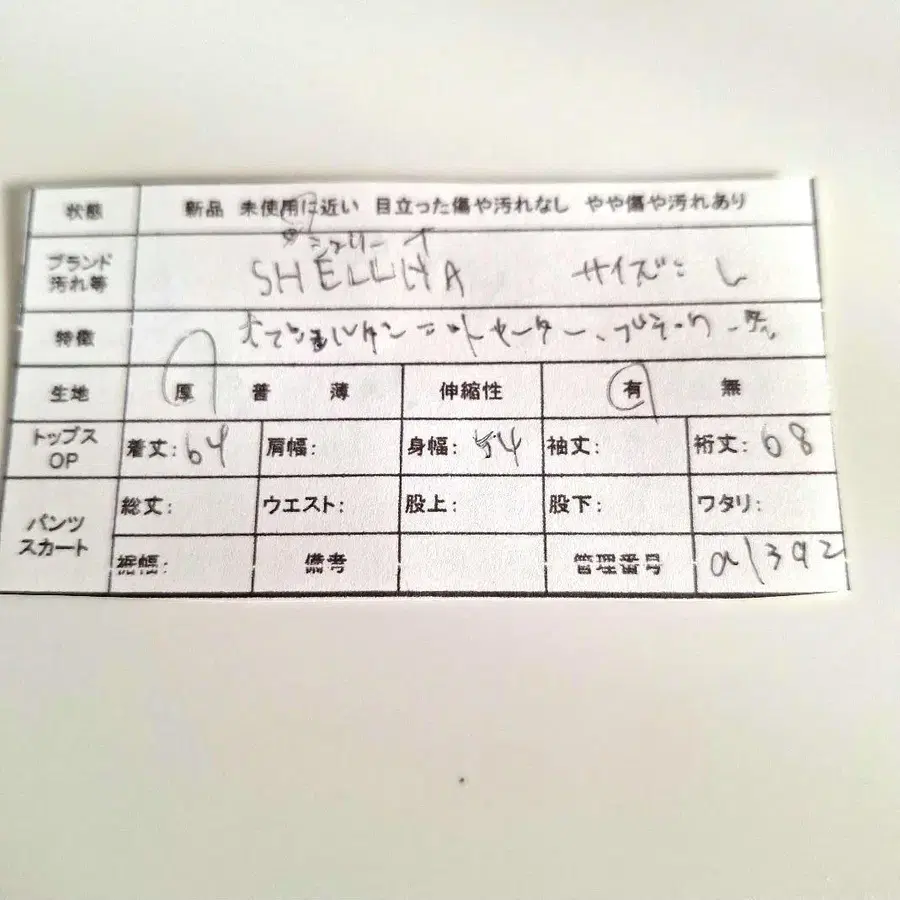 状態 新品 未使用に近い 目立った傷や汚れなし やや傷や汚れあり
シェリー
ブランド 汚れ等 SHELLHA サイズ: L
特徴 ニットセーター、ブラック
生地 厚 普 薄 伸縮性 有 無
トップス OP 着丈: 64 肩幅: 身幅: 54 袖丈: 裄丈: 68
パンツ スカート 総丈: ウエスト: 股上: 股下: ワタリ:
裾幅: 備考 管理番号 a1392